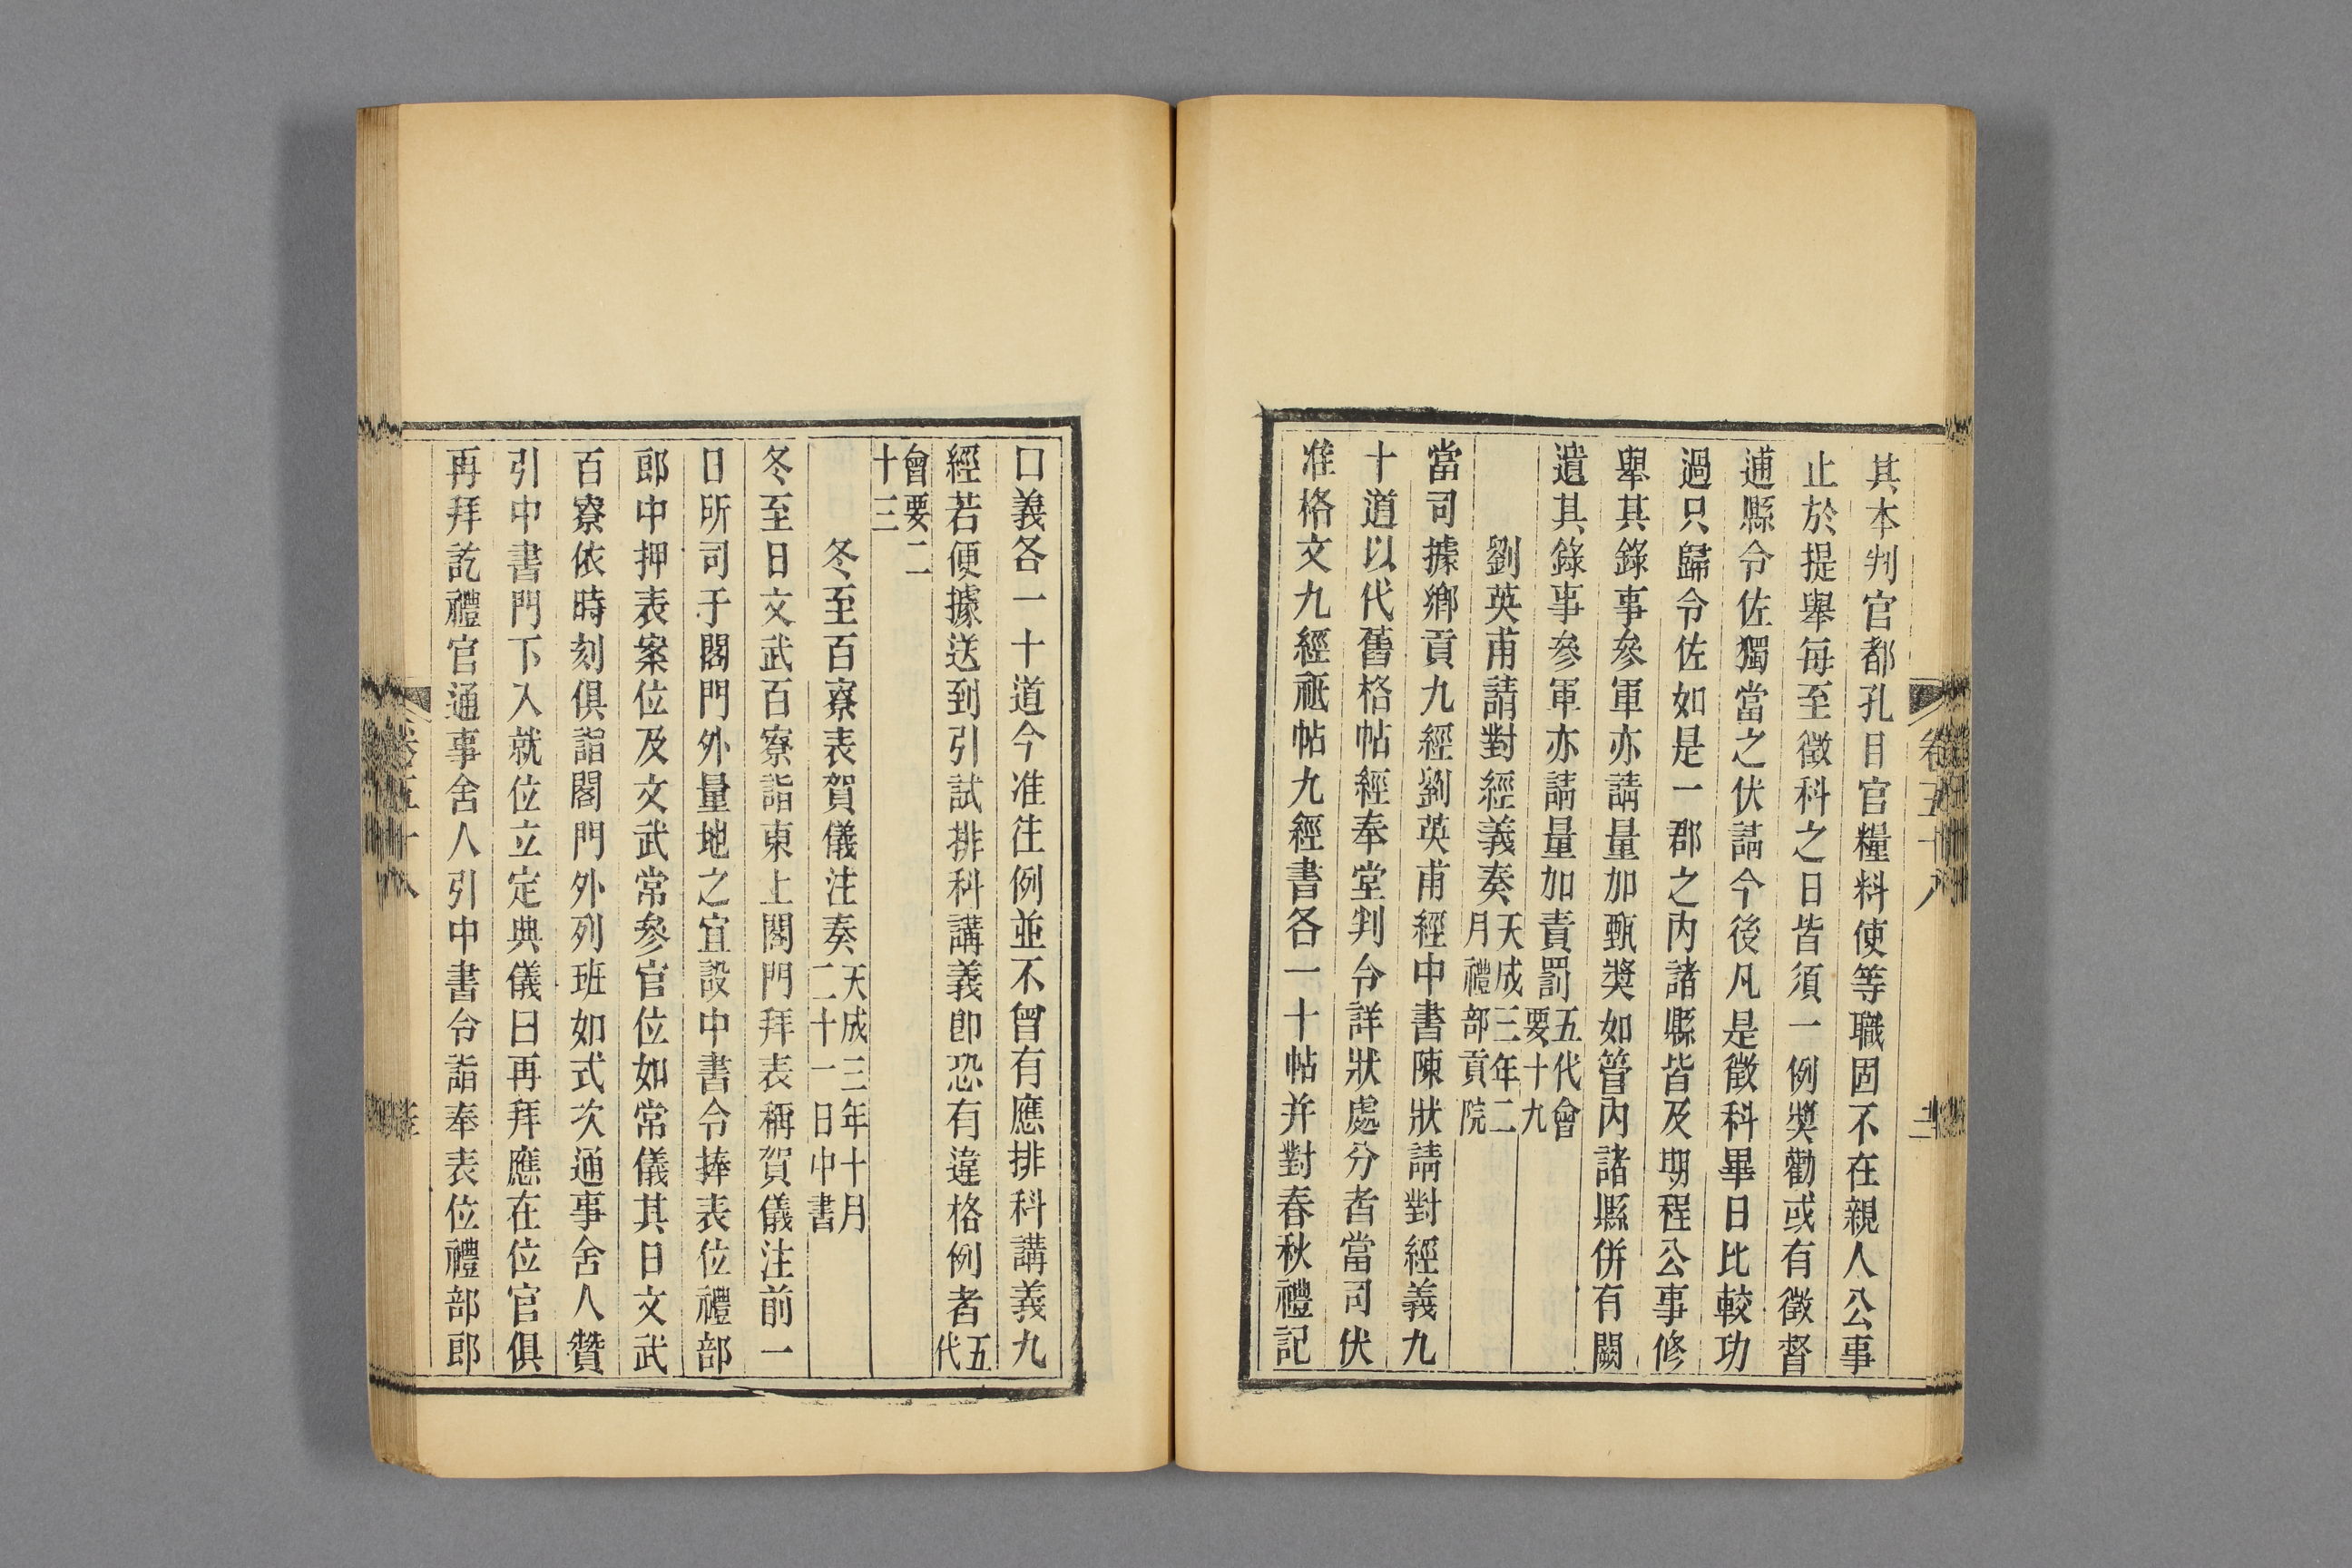 其本判官都孔目官糧料使等職固不在親人公事
止於提舉每至徵科之日皆須一例獎勸或有徵督
逋縣令佐獨當之伏請今後凡是徵科畢日比較功
過只歸令佐如是一郡之內諸縣皆及期程公事修
舉其錄事參軍亦請量加甄獎如管內諸縣併有闕
遺其錄事參軍亦請量加責罰五代會
要十九
劉英甫請對經義奏天成三年二
月禮部貢院
當司據鄉貢九經劉英甫經中書陳狀請對經義九
十道以代舊格帖經奉堂判令詳狀處分者當司伏
准格文九經祗帖九經書各一十帖并對春秋禮記
口義各一十道今准往例並不曾有應排科講義九
經若便據送到引試排科講義即恐有違格例者五
代
會要二
十三
冬至百寮表賀儀注奏天成三年十月
二十一日中書
冬至日文武百寮詣東上閤門拜表稱賀儀注前一
日所司于閤門外量地之宜設中書令捧表位禮部
郎中押表案位及文武常參官位如常儀其日文武
百寮依時刻俱詣閤門外列班如式次通事舍人贊
引中書門下入就位立定典儀曰再拜應在位官俱
再拜訖禮官通事舍人引中書令詣奉表位禮部郎
卷五十八